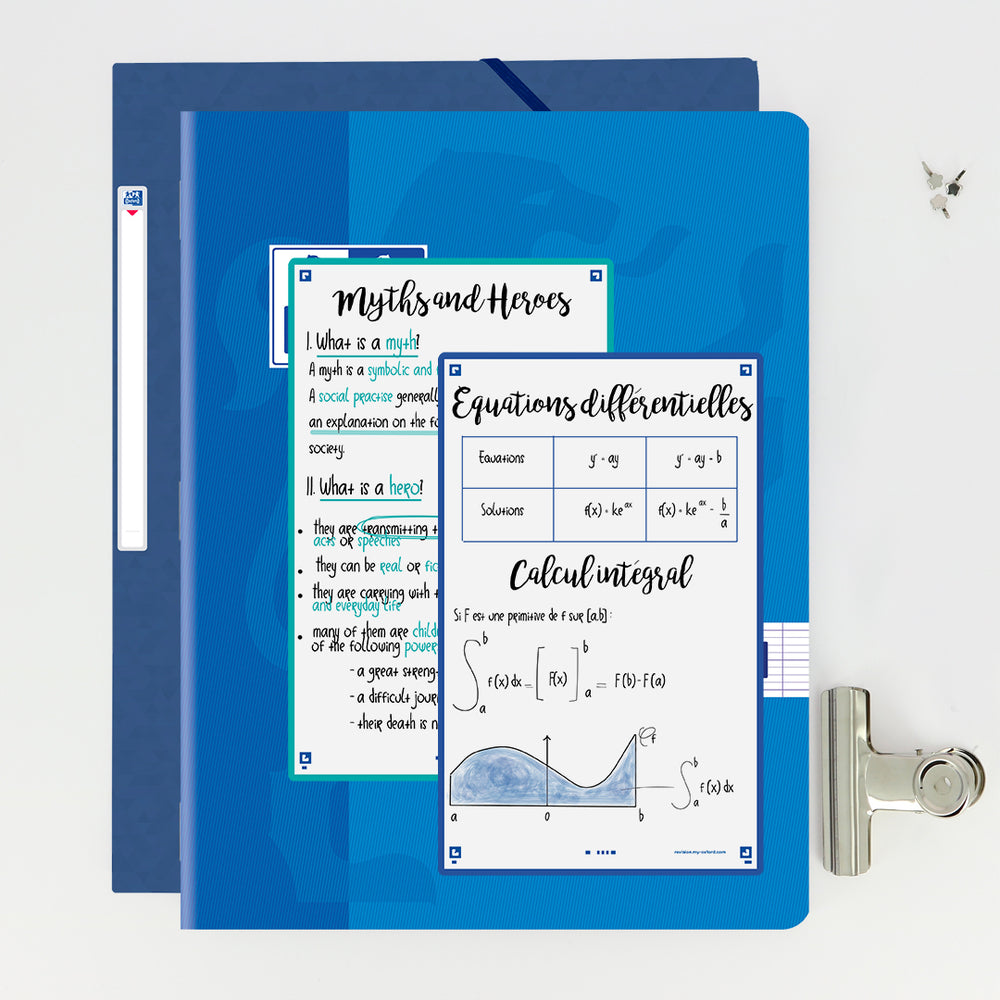 Myths and Heroes
I. What is a myth?
A myth is a symbolic and
A social practise generally
an explanation on the
society.
II. What is a hero?
• they are transmitting
acts or speeches
• they can be real or
• they are carrying with
and everyday life
• many of them are
of the following
- a great
- a difficult
- their death is
Equations différentielles
Equations y' = ay y' = ay + b
Solutions f(x) = ke^ax f(x) = ke^ax - b/a
Calcul intégral
Si F est une primitive de f sur [a,b] :
∫ₐᵇ f(x) dx = [F(x)]ₐᵇ = F(b) - F(a)
f
∫ₐᵇ f(x) dx
a 0 b
revision.my-oxford.com